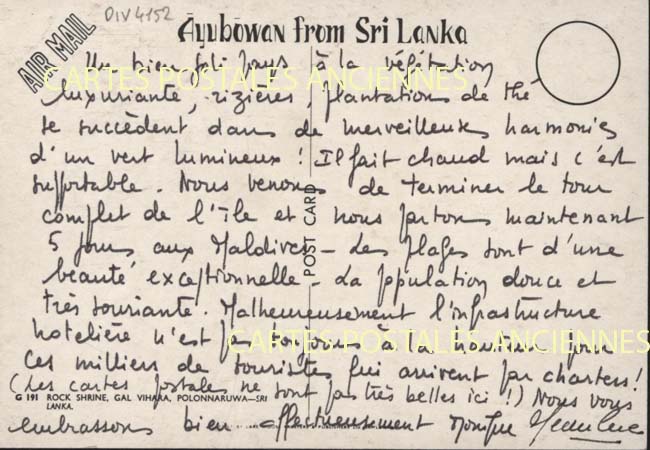 DIV4152
AIR MAIL
Āyubōwan from Sri Lanka
Un bien joli pays à la végétation
CARTES POSTALES ANCIENNES
luxuriante, rizières, plantations de thé
se succèdent dans de merveilleuses harmonies
d'un vert lumineux ! Il fait chaud mais c'est
supportable. Nous venons de terminer le tour
complet de l'île et nous partons maintenant
5 jours aux Maldives - Les plages sont d'une
beauté exceptionnelle - La population douce et
très souriante. Malheureusement l'infrastructure
hotelière n'est pas toujours à la hauteur pour
CARTES POSTALES ANCIENNES
ces milliers de touristes qui arrivent par charters !
(Les cartes postales ne sont pas très belles ici !) Nous vous
embrassons bien affectueusement Monique Jean Luc
POST CARD
G 191 ROCK SHRINE, GAL VIHARA, POLONNARUWA—SRI
LANKA.